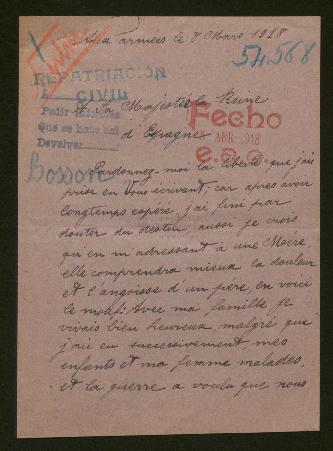 Aux armées le 8 Mars 1918
54.568
REPATRIACIÓN
A CIVIL
Pedir informes
Que se hace
Devolver
Bosson
Fecho
ABR. 1918
A Sa Majestée la Reine
d'Espagne
Pardonnez moi la liberté que j'ai
prise en Vous écrivant, car après avoir
longtemps espéré, j'ai fini par
douter du destin, aussi je crois
qu'en m'adressant à une Mère,
elle comprendra mieux la douleur
et l'angoisse d'un père, en voici
le motif. Avec ma famille je
vivais bien heureux, malgré que
j'ai eu successivement, mes
enfants et ma femme malades,
et la guerre a voulu que nous